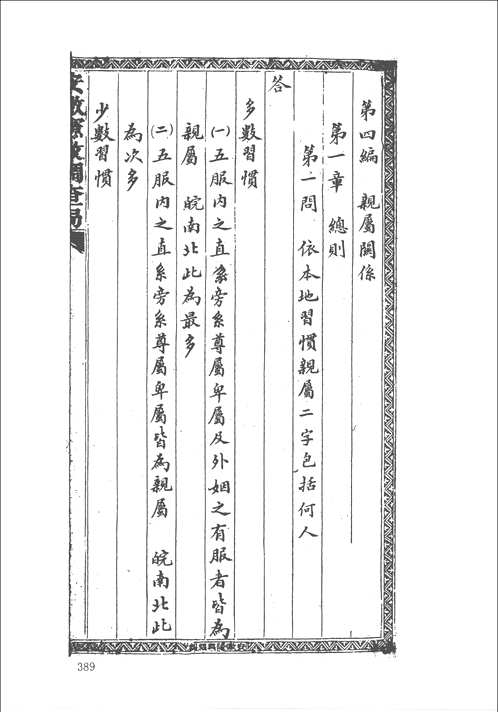 第四編　親屬關係
第一章　總則
第一問　依本地習慣親屬二字包括何人
答
多數習慣
㈠五服內之直系旁系尊屬卑屬及外姻之有服者皆為
親屬　皖南北此為最多
㈡五服內之直系旁系尊屬卑屬皆為親屬　皖南北此
為次多
少數習慣
安徽憲政調查局
389